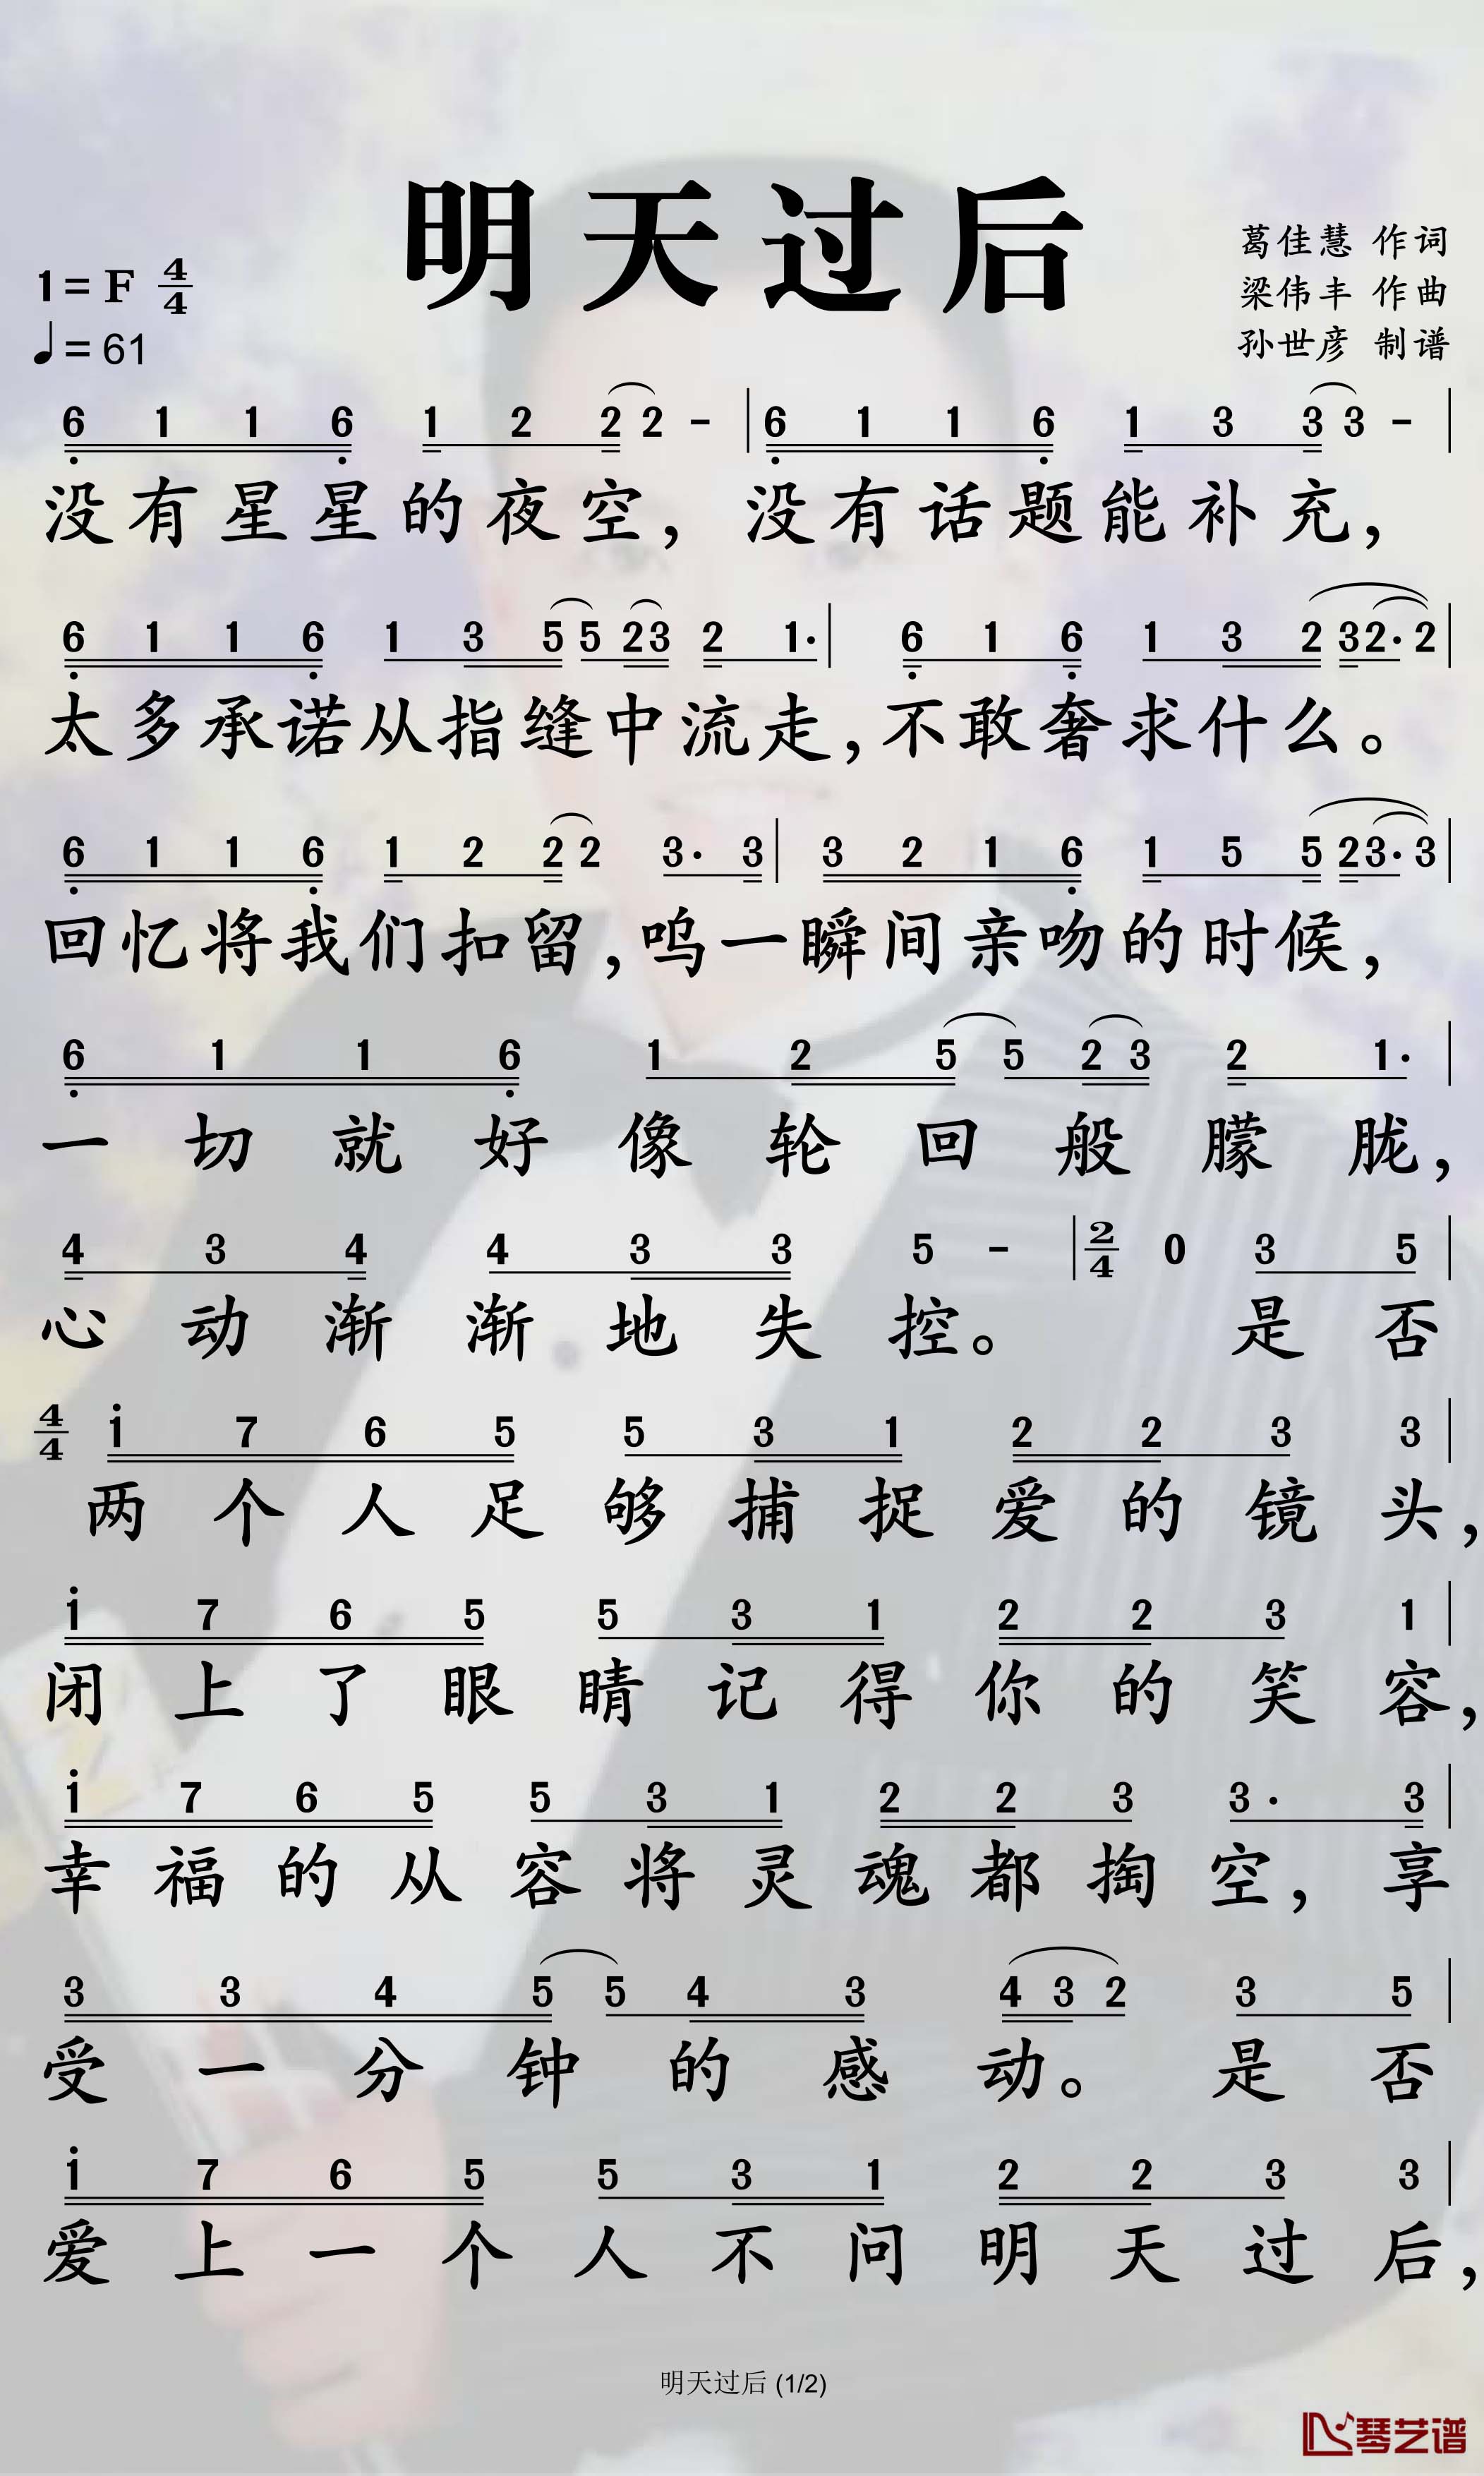 明天过后
葛佳慧 作词
1=F 4/4
梁伟丰 作曲
♩=61
孙世彦 制谱
6 1 1 6 1 2 2 2 - | 6 1 1 6 1 3 3 3 - |
没有星星的夜空，没有话题能补充，
6 1 1 6 1 3 5 5 2 3 2 1· | 6 1 6 1 3 2 3 2· 2 |
太多承诺从指缝中流走，不敢奢求什么。
6 1 1 6 1 2 2 2 3· 3 | 3 2 1 6 1 5 5 2 3· 3 |
回忆将我们扣留，呜一瞬间亲吻的时候，
6 1 1 6 1 2 5 5 2 3 2 1· |
一切就好像轮回般朦胧，
4 3 4 4 3 3 5 - | 2/4 0 3 5 |
心动渐渐地失控。 是否
4/4 i 7 6 5 5 3 1 2 2 3 3 |
两个人足够捕捉爱的镜头，
i 7 6 5 5 3 1 2 2 3 1 |
闭上了眼睛记得你的笑容，
i 7 6 5 5 3 1 2 2 3 3· 3 |
幸福的从容将灵魂都掏空，享
3 3 4 5 5 4 3 4 3 2 3 5 |
受一分钟的感动。是否
i 7 6 5 5 3 1 2 2 3 3 |
爱上一个人不问明天过后，
明天过后 (1/2)
琴艺谱